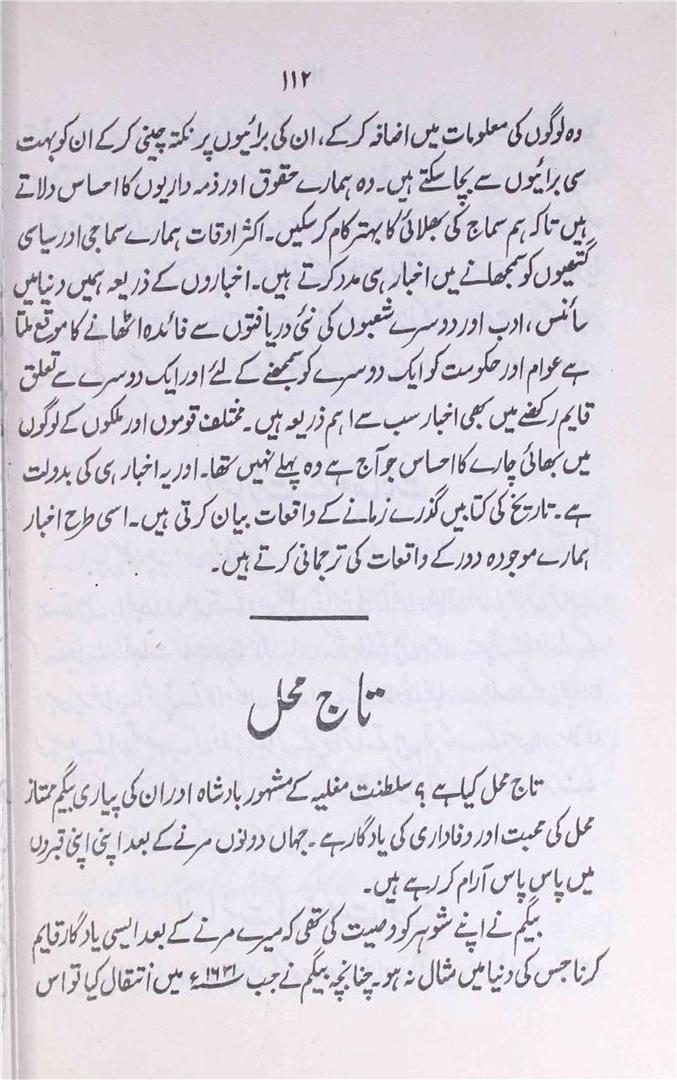 ۱۱۲
وہ لوگوں کی معلومات میں اضافہ کر کے، ان کی برائیوں پر نکتہ چینی کر کے ان کو بہت
سی برائیوں سے بچا سکتے ہیں۔ وہ ہمارے حقوق اور ذمہ داریوں کا احساس دلاتے
ہیں تاکہ ہم سماج کی بھلائی کا بہتر کام کر سکیں۔ اکثر اوقات ہمارے سماجی اور سیاسی
گتھیوں کو سمجھانے میں اخبار ہی مدد کرتے ہیں۔ اخباروں کے ذریعہ ہمیں دنیا میں
سائنس، ادب اور دوسرے شعبوں کی نئی دریافتوں سے فائدہ اٹھانے کا موقع ملتا
ہے عوام اور حکومت کو ایک دوسرے کو سمجھنے کے لئے اور ایک دوسرے سے تعلق
قایم رکھنے میں بھی اخبار سب سے اہم ذریعہ ہیں۔ مختلف قوموں اور ملکوں کے لوگوں
میں بھائی چارے کا احساس جو آج ہے وہ پہلے نہیں تھا۔ اور یہ اخبار ہی کی بدولت
ہے۔ تاریخ کی کتابیں گذرے زمانے کے واقعات بیان کرتی ہیں۔ اسی طرح اخبار
ہمارے موجودہ دور کے واقعات کی ترجمانی کرتے ہیں۔
تاج محل
تاج محل کیا ہے؟ سلطنت مغلیہ کے مشہور بادشاہ اور ان کی پیاری بیگم ممتاز
محل کی محبت اور وفاداری کی یادگار ہے۔ جہاں دونوں مرنے کے بعد اپنی اپنی قبروں
میں پاس پاس آرام کر رہے ہیں۔
بیگم نے اپنے شوہر کو وصیت کی تھی کہ میرے مرنے کے بعد ایسی یادگار قایم
کرنا جس کی دنیا میں مثال نہ ہو۔ چنانچہ بیگم نے جب ۱۶۳۱ء میں انتقال کیا تو اس